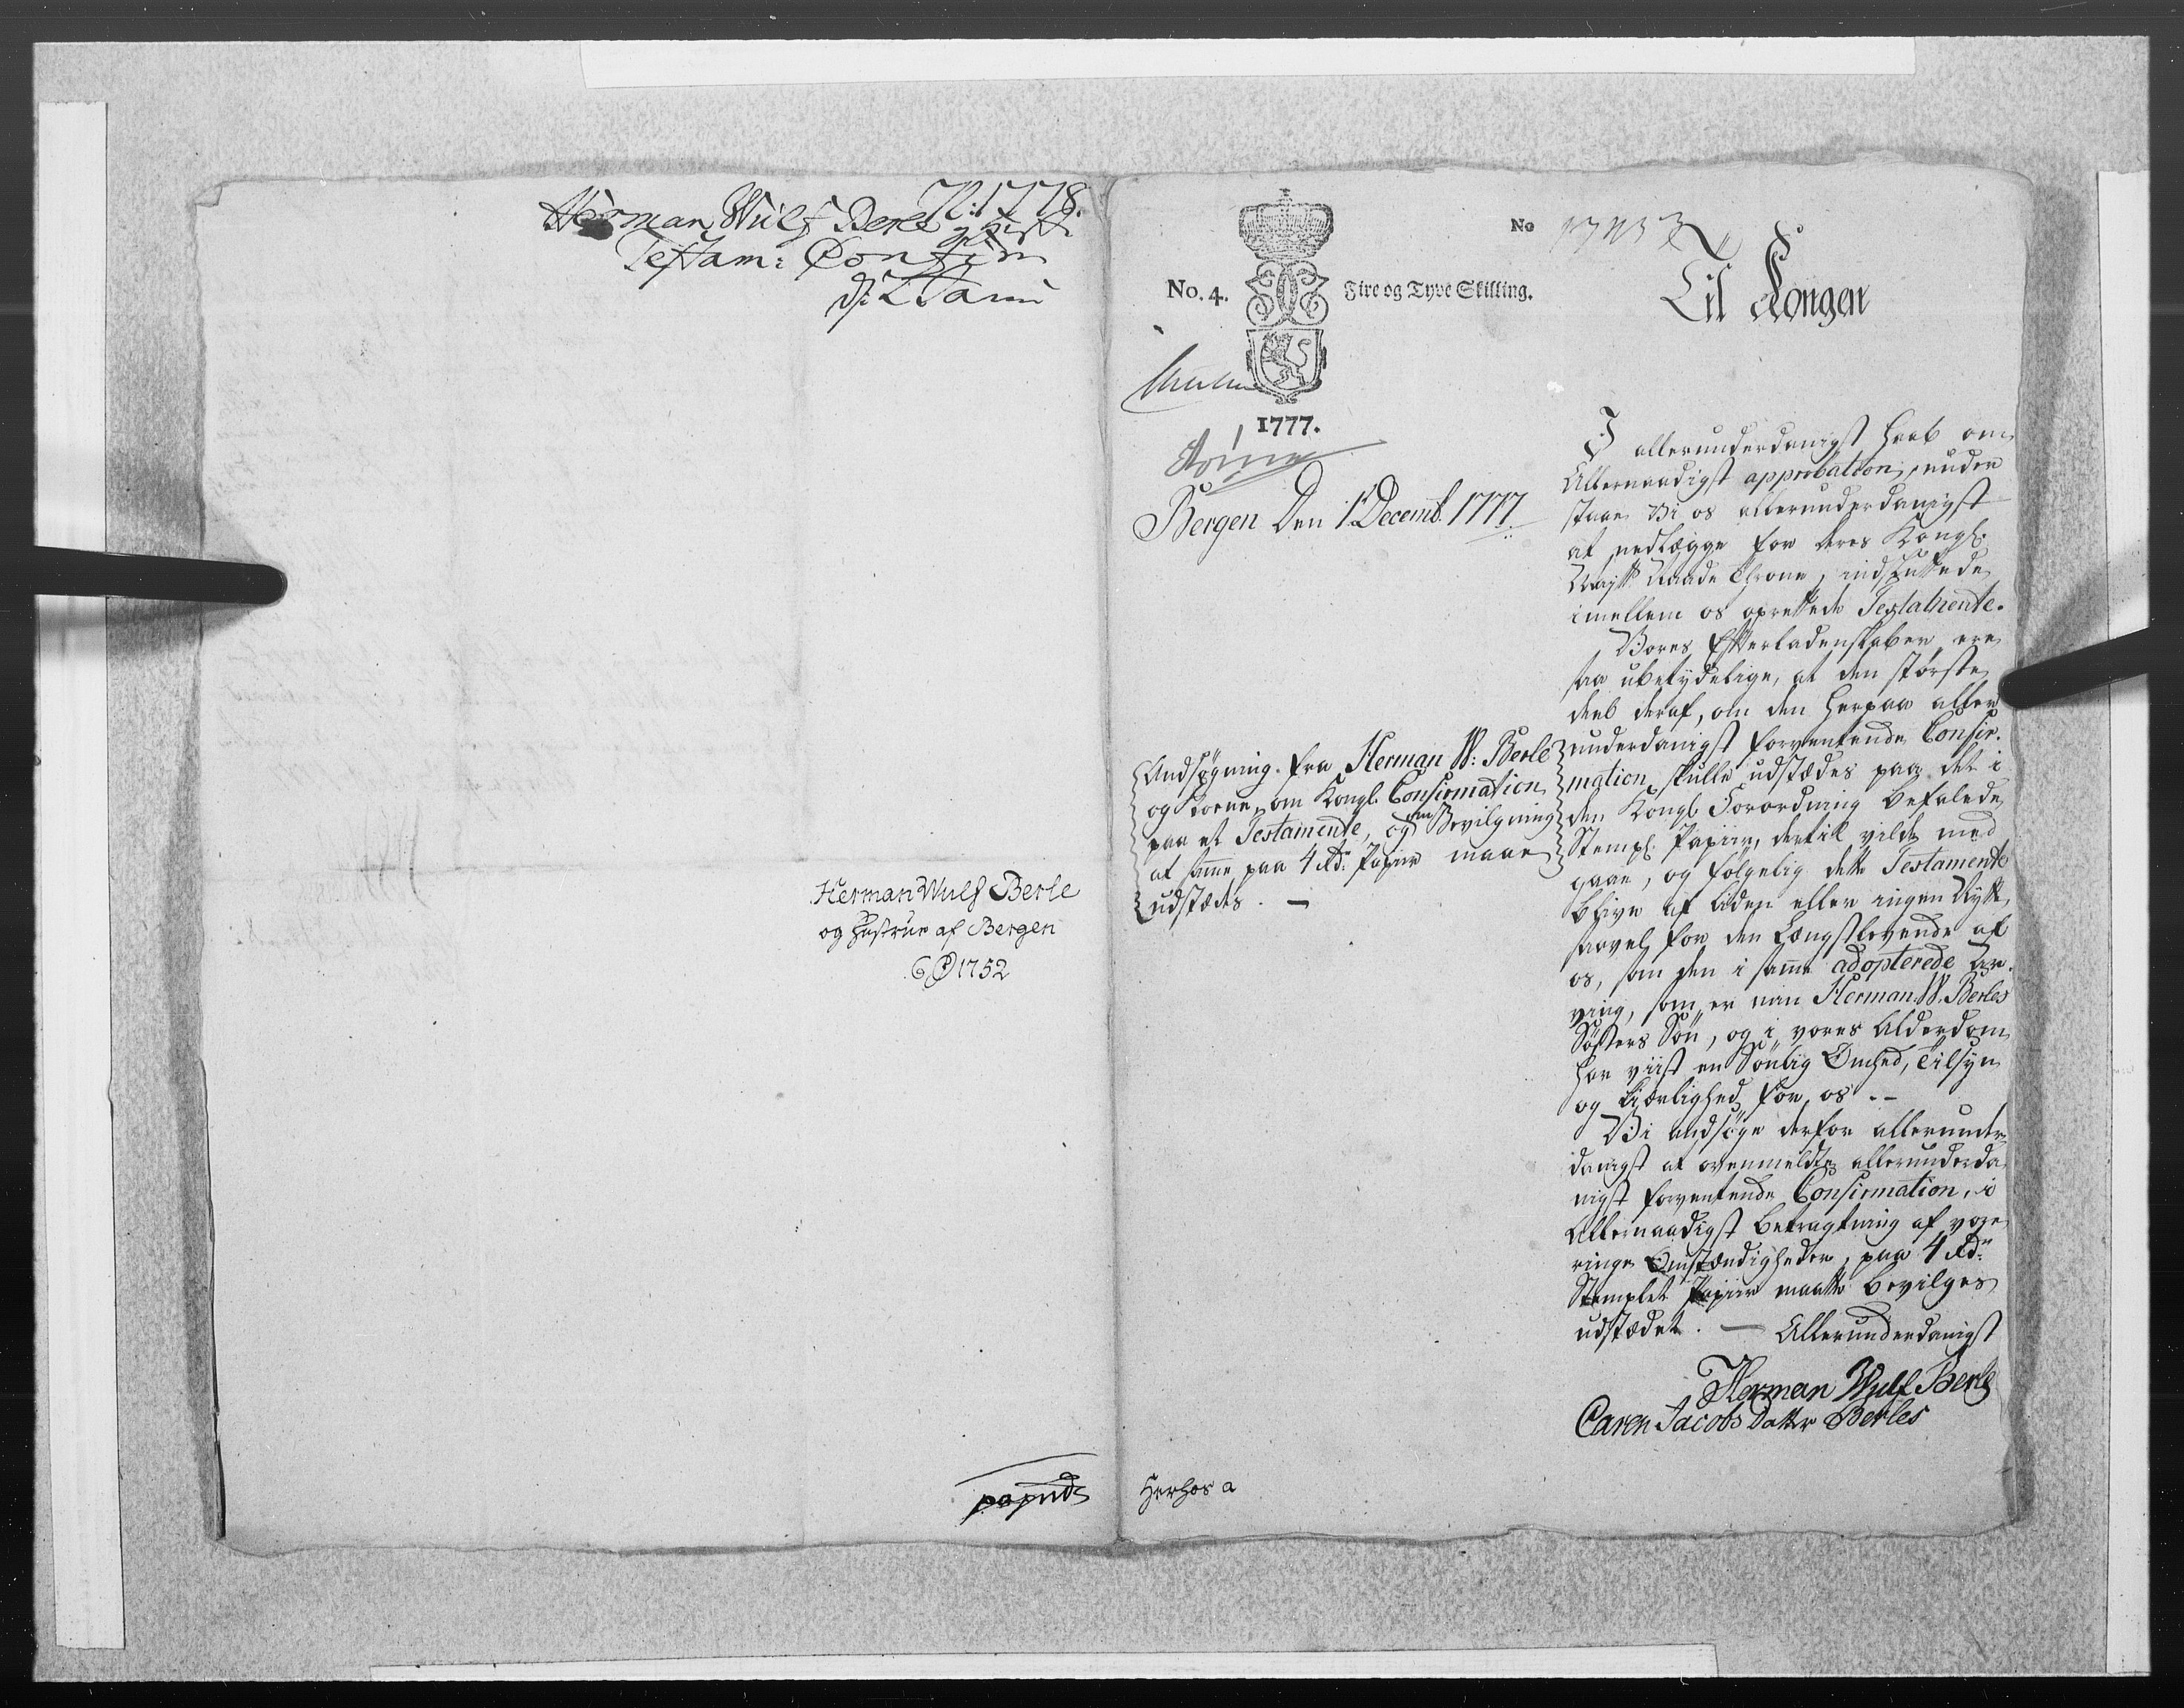 N: 1778.
Herman Wulf Berle
Testam: Confir
Herman Wulf Berle
og Hustrue af Bergen
1752
No. 4.
Fire og Tyve Skilling.
No
1777.
Bergen Den 1. Decemb. 1777
Andsøgning fra Herman W: Berle
og Kone, om Kongl. Confirmation
paa et Testamente, og om Bevilgning
at samme paa 4 Rd. Papiir maae
udstædes. —
Herhos a
Til Kongen
I allerunderdanigst Haab om
Allernaadigst approbation, under
staae Vi os allerunderdanigst
at nedlægge for deres Kongl.
Mayts Naade Throne, indsluttede
imellem os oprettede Testamente.
Vores Efterladenskaber ere
saa ubetydelige, at den største
deel deraf, om den herpaa aller
underdanigst forventende Confir-
mation skulle udstædes paa det i
den Kongl. Forordning befalede
Stempl. Papiir, dertil vilde med
gaae, og følgelig dette Testamente
blive af liden eller ingen Nytte
saavel for den Længstlevende af
os, som den i samme adopterede Ar-
ving, som er min Herman W. Berles
Søsters Søn, og i vores Alderdom
har viist en Sønlig Ømhed, Tilsyn
og Kierlighed for os. —
Vi andsøge derfor allerunder
danigst at ovenmeldte allerunderda
nigst forventende Confirmation, i
Allernaadigst betragtning af vore
ringe Omstændigheder, paa 4 Rd.
Stemplet Papiir maatte bevilges
udstædet. — Allerunderdanigst
Herman Wulf Berle
Caren Jacobs Datter Berles